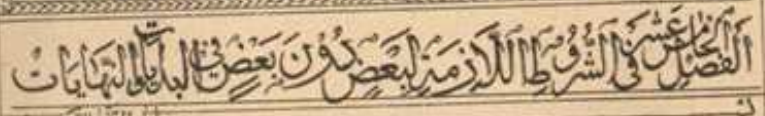 الفصل الخامس عشر في الشروط اللازمة لبعض دون بعض في البدايات والنهايات